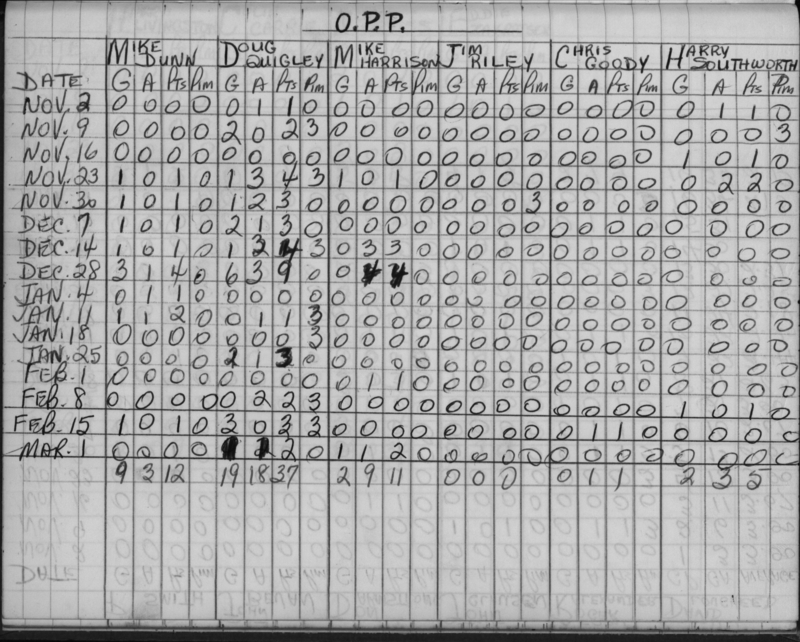 O.P.P.
MIKE DUNN DOUG QUIGLEY MIKE HARRISON JIM RILEY CHRIS GOODY HARRY SOUTHWORTH
DATE G A Pts Pim G A Pts Pim G A Pts Pim G A Pts Pim G A Pts Pim G A Pts Pim
NOV. 2 0 0 0 0 0 1 1 0 0 0 0 0 0 0 0 0 0 0 0 0 0 1 1 0
NOV. 9 0 0 0 0 2 0 2 3 0 0 0 0 0 0 0 0 0 0 0 0 0 0 0 3
NOV. 16 0 0 0 0 0 0 0 0 0 0 0 0 0 0 0 0 0 0 0 0 1 0 1 0
NOV. 23 1 0 1 0 1 3 4 3 1 0 1 0 0 0 0 0 0 0 0 0 0 2 2 0
NOV. 30 1 0 1 0 1 2 3 0 0 0 0 0 0 0 0 3 0 0 0 0 0 0 0 0
DEC. 7 1 0 1 0 2 1 3 0 0 0 0 0 0 0 0 0 0 0 0 0 0 0 0 0
DEC. 14 1 0 1 0 1 3 4 3 0 3 3 0 0 0 0 0 0 0 0 0 0 0 0 0
DEC. 28 3 1 4 0 6 3 9 0 0 4 4 0 0 0 0 0 0 0 0 0 0 0 0 0
JAN. 4 0 1 1 0 0 0 0 0 0 0 0 0 0 0 0 0 0 0 0 0 0 0 0 0
JAN. 11 1 1 2 0 0 1 1 3 0 0 0 0 0 0 0 0 0 0 0 0 0 0 0 0
JAN. 18 0 0 0 0 0 0 0 3 0 0 0 0 0 0 0 0 0 0 0 0 0 0 0 0
JAN. 25 0 0 0 0 2 1 3 0 0 0 0 0 0 0 0 0 0 0 0 0 0 0 0 0
FEB. 1 0 0 0 0 0 0 0 0 0 1 1 0 0 0 0 0 0 0 0 0 0 0 0 0
FEB. 8 0 0 0 0 0 2 2 3 0 0 0 0 0 0 0 0 0 0 0 0 1 0 1 0
FEB. 15 1 0 1 0 3 0 3 3 0 0 0 0 0 0 0 0 0 1 1 0 0 0 0 0
MAR. 1 0 0 0 0 1 1 2 0 1 1 2 0 0 0 0 0 0 0 0 0 0 0 0 0
9 3 12 19 18 37 2 9 11 0 0 0 0 1 1 2 3 5